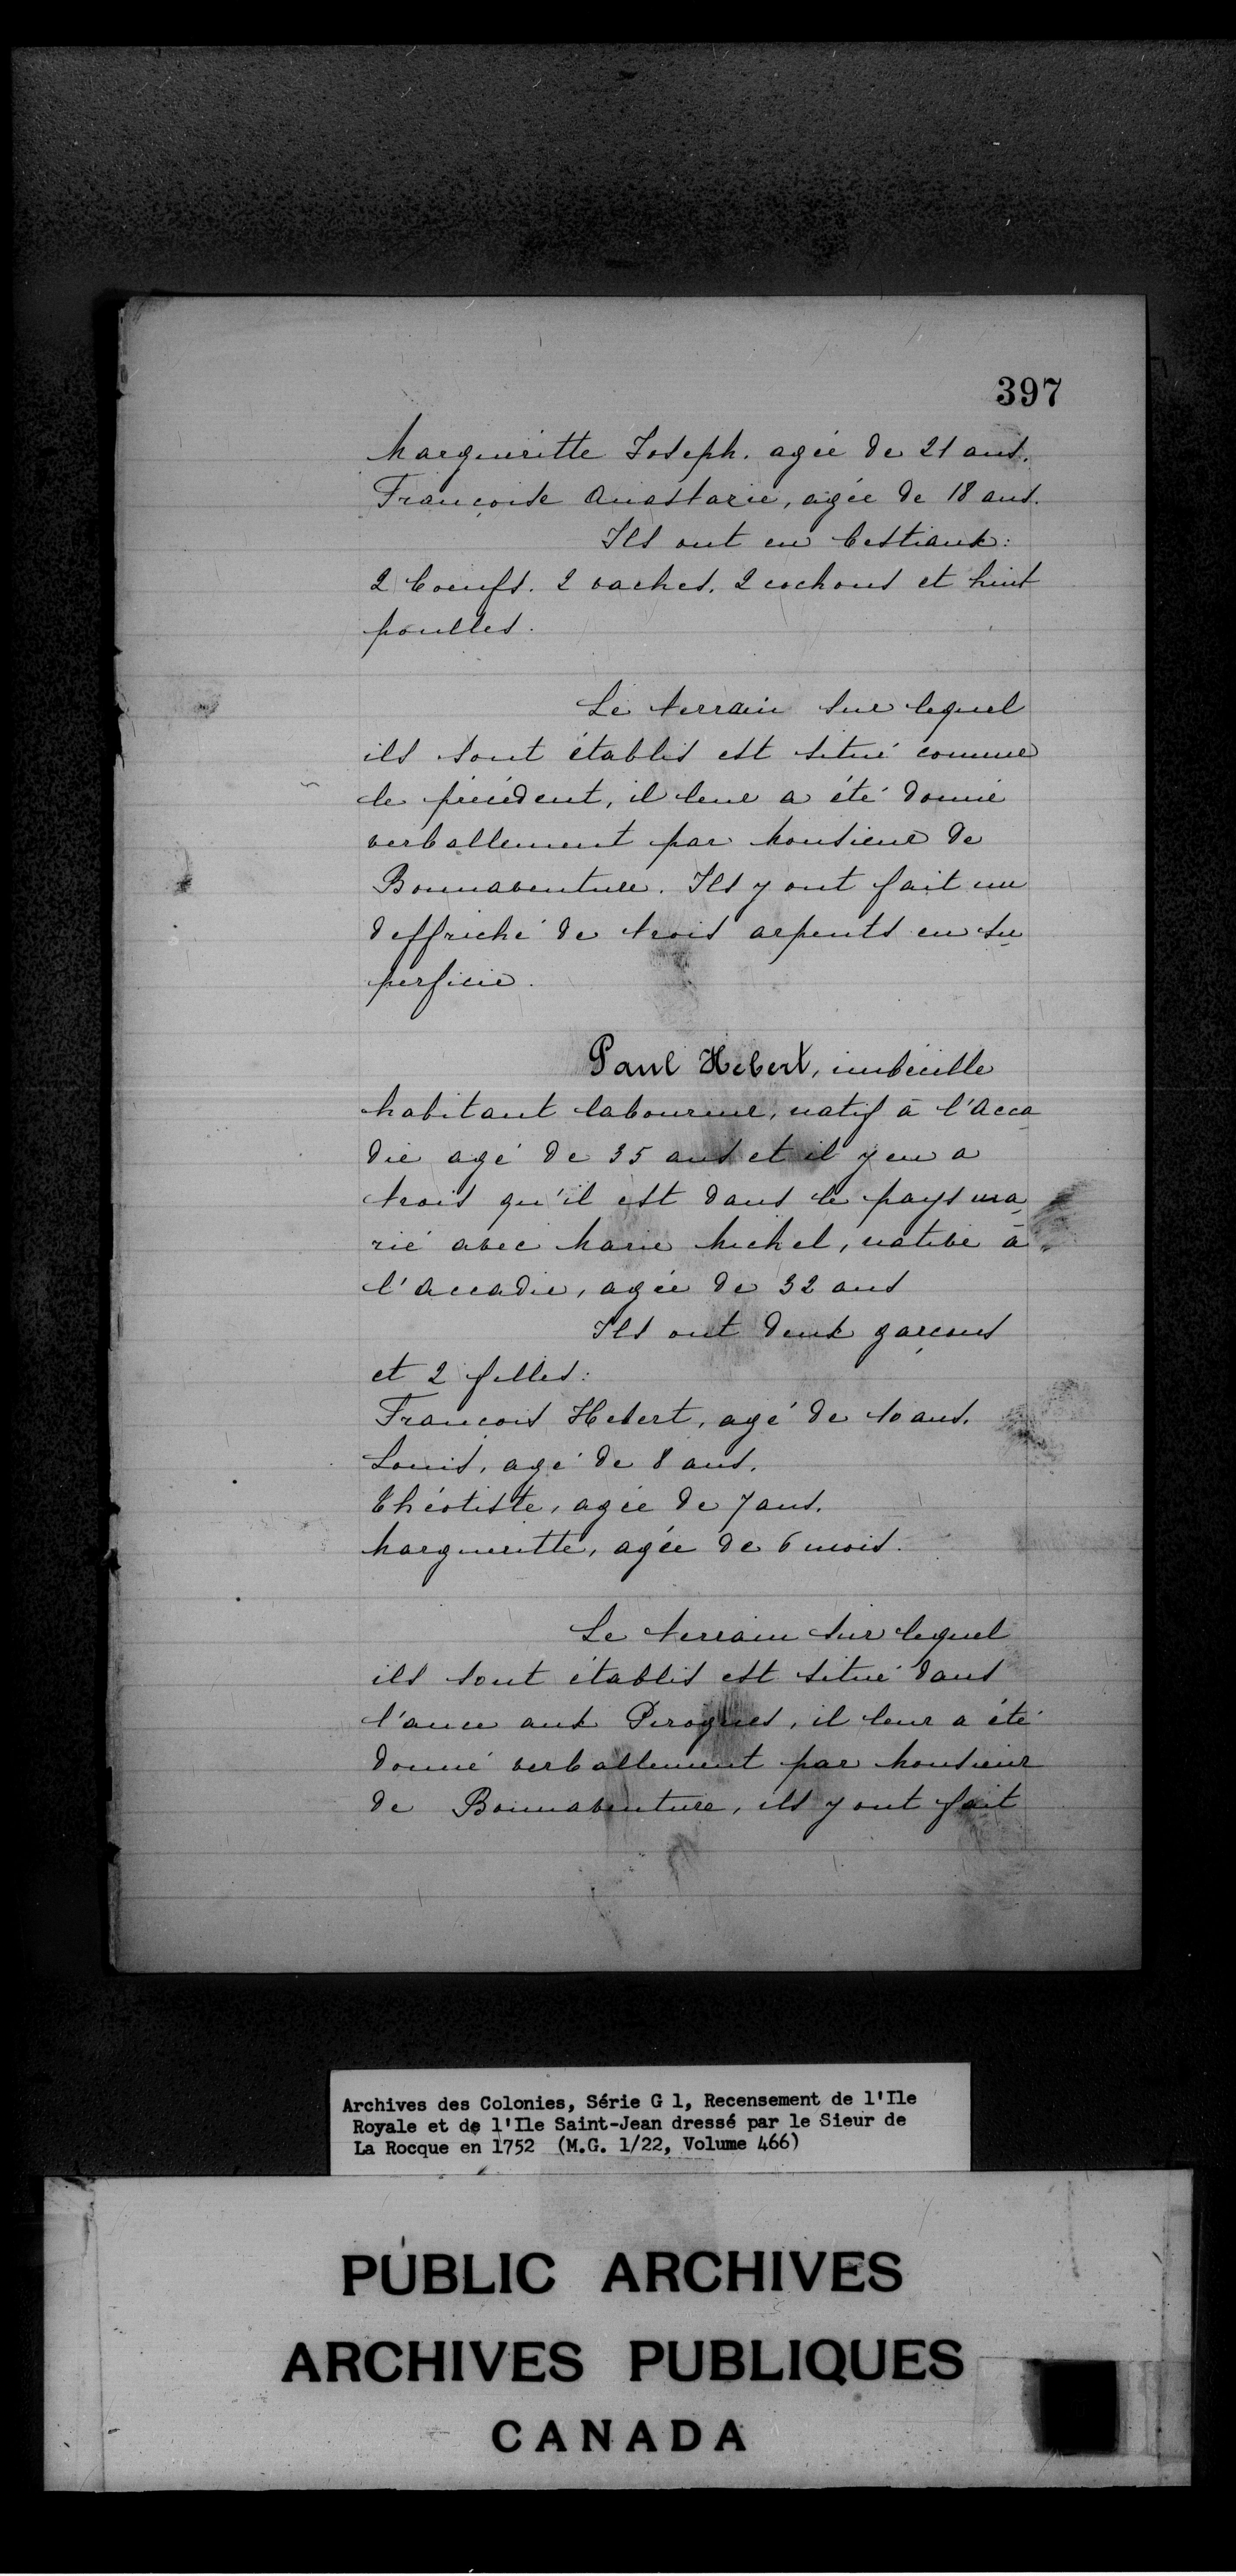 397
Margueritte Joseph. agée de 21 ans.
Françoise Anastazie, agée de 18 ans.
Ils ont en bestiaux:
2 boeufs. 2 vaches. 2 cochons et huit
poulles.
Le terrain sur lequel
ils sont établis est situé comme
le précédent, il leur a été donné
verballement par Monsieur de
Bonnaventure. Ils y ont fait un
deffriché de trois arpents en su
perficie.
Paul Hebert, imbécille
habitant laboureur, natif à l'Acca
die agé de 35 ans et il y en a
trois qu'il est dans le pays ma
rié avec Marie Michel, native à
l'Accadie, agée de 32 ans
Ils ont deux garçons
et 2 filles:
François Hebert, agé de 10 ans.
Louis, agé de 8 ans.
Théotiste, agée de 7 ans.
Margueritte, agée de 6 mois.
Le terrain sur lequel
ils sont établis est situé dans
l'ance aux Pirogues, il leur a été
donné verballement par Monsieur
de Bonnaventure, ils y ont fait
Archives des Colonies, Série G 1, Recensement de l'Ile
Royale et de l'Ile Saint-Jean dressé par le Sieur de
La Rocque en 1752 (M.G. 1/22, Volume 466)
PUBLIC ARCHIVES
ARCHIVES PUBLIQUES
CANADA